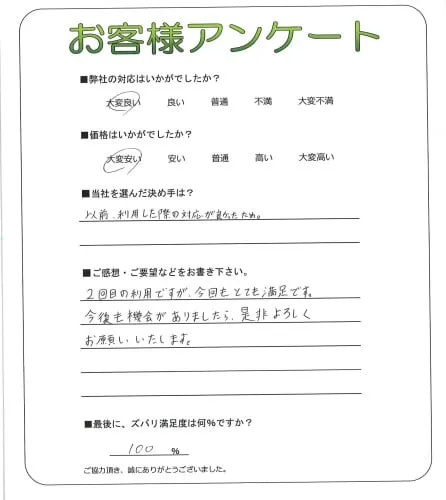 お客様アンケート
■弊社の対応はいかがでしたか?
大変良い 良い 普通 不満 大変不満
■価格はいかがでしたか?
大変安い 安い 普通 高い 大変高い
■当社を選んだ決め手は?
以前、利用した際の対応が良かったため。
■ご感想・ご要望などをお書き下さい。
2回目の利用ですが、今回もとても満足です。
今後も機会がありましたら、是非よろしく
お願いいたします。
■最後に、ズバリ満足度は何%ですか?
100 %
ご協力頂き、誠にありがとうございました。